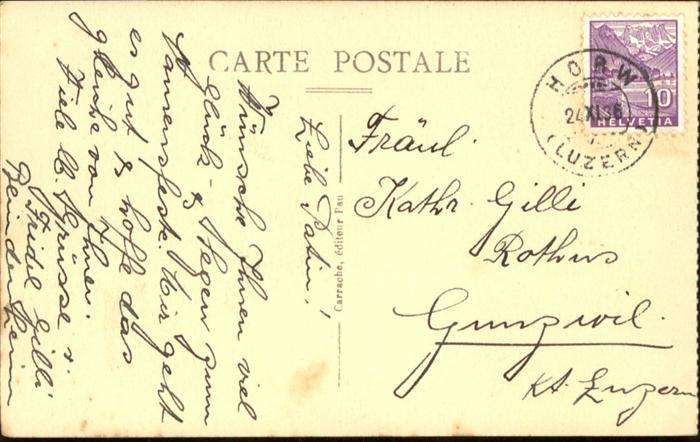 CARTE POSTALE
HORW
24.XI.
(LUZERN)
10
HELVETIA
Carrache, éditeur Pau
Liebe Patin!
Wünsche Ihnen viel
Glück- & Segen zum
Namensfeste. Mir geht
es gut & hoffe das
gleiche von Ihnen.
Viele lb. Grüsse v.
Fridel Gilli
Fräul.
Kathr. Gilli
Rothus
Gunzwil.
Kt. Luzern